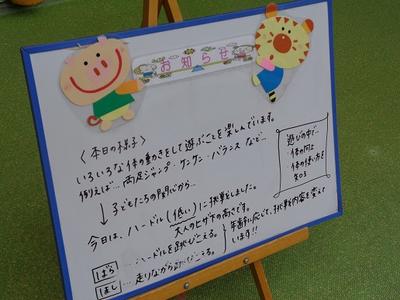 お知らせ
〈本日の様子〉
いろいろな体の動きをして遊ぶことを楽しんでいます。
例えば… 両足ジャンプ・ケンケン・バランスなど…
↓子どもたちの関心から…
今日は、ハードル(低い)に挑戦しました。
大人のヒザ下の高さです。
ばら …ハードルを跳びこえる。
ほし …走りながら跳びこえる。
年齢に応じて、挑戦内容を変えて
います!!
遊びの中で…
・体の向上
・体の使い方を
知る